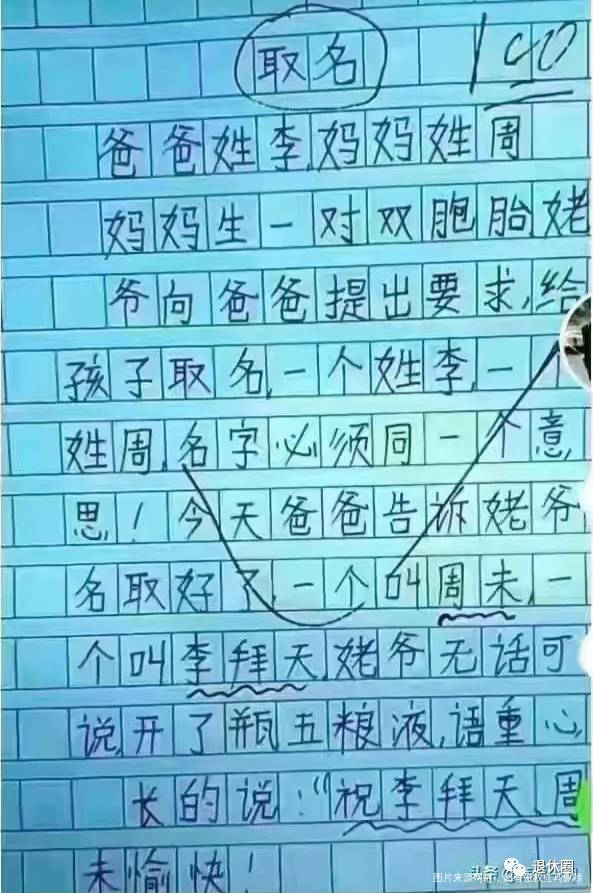 取名 100
爸爸姓李,妈妈姓周
妈妈生一对双胞胎姥
爷向爸爸提出要求,给
孩子取名,一个姓李,一个
姓周,名字必须同一个意
思!今天爸爸告诉姥爷
名取好了,一个叫周未,一
个叫李拜天,姥爷无话可
说,开了瓶五粮液,语重心
长的说:"祝李拜天、周
未愉快!
头条
退休圈
图片来源网络,如有侵权立马删除